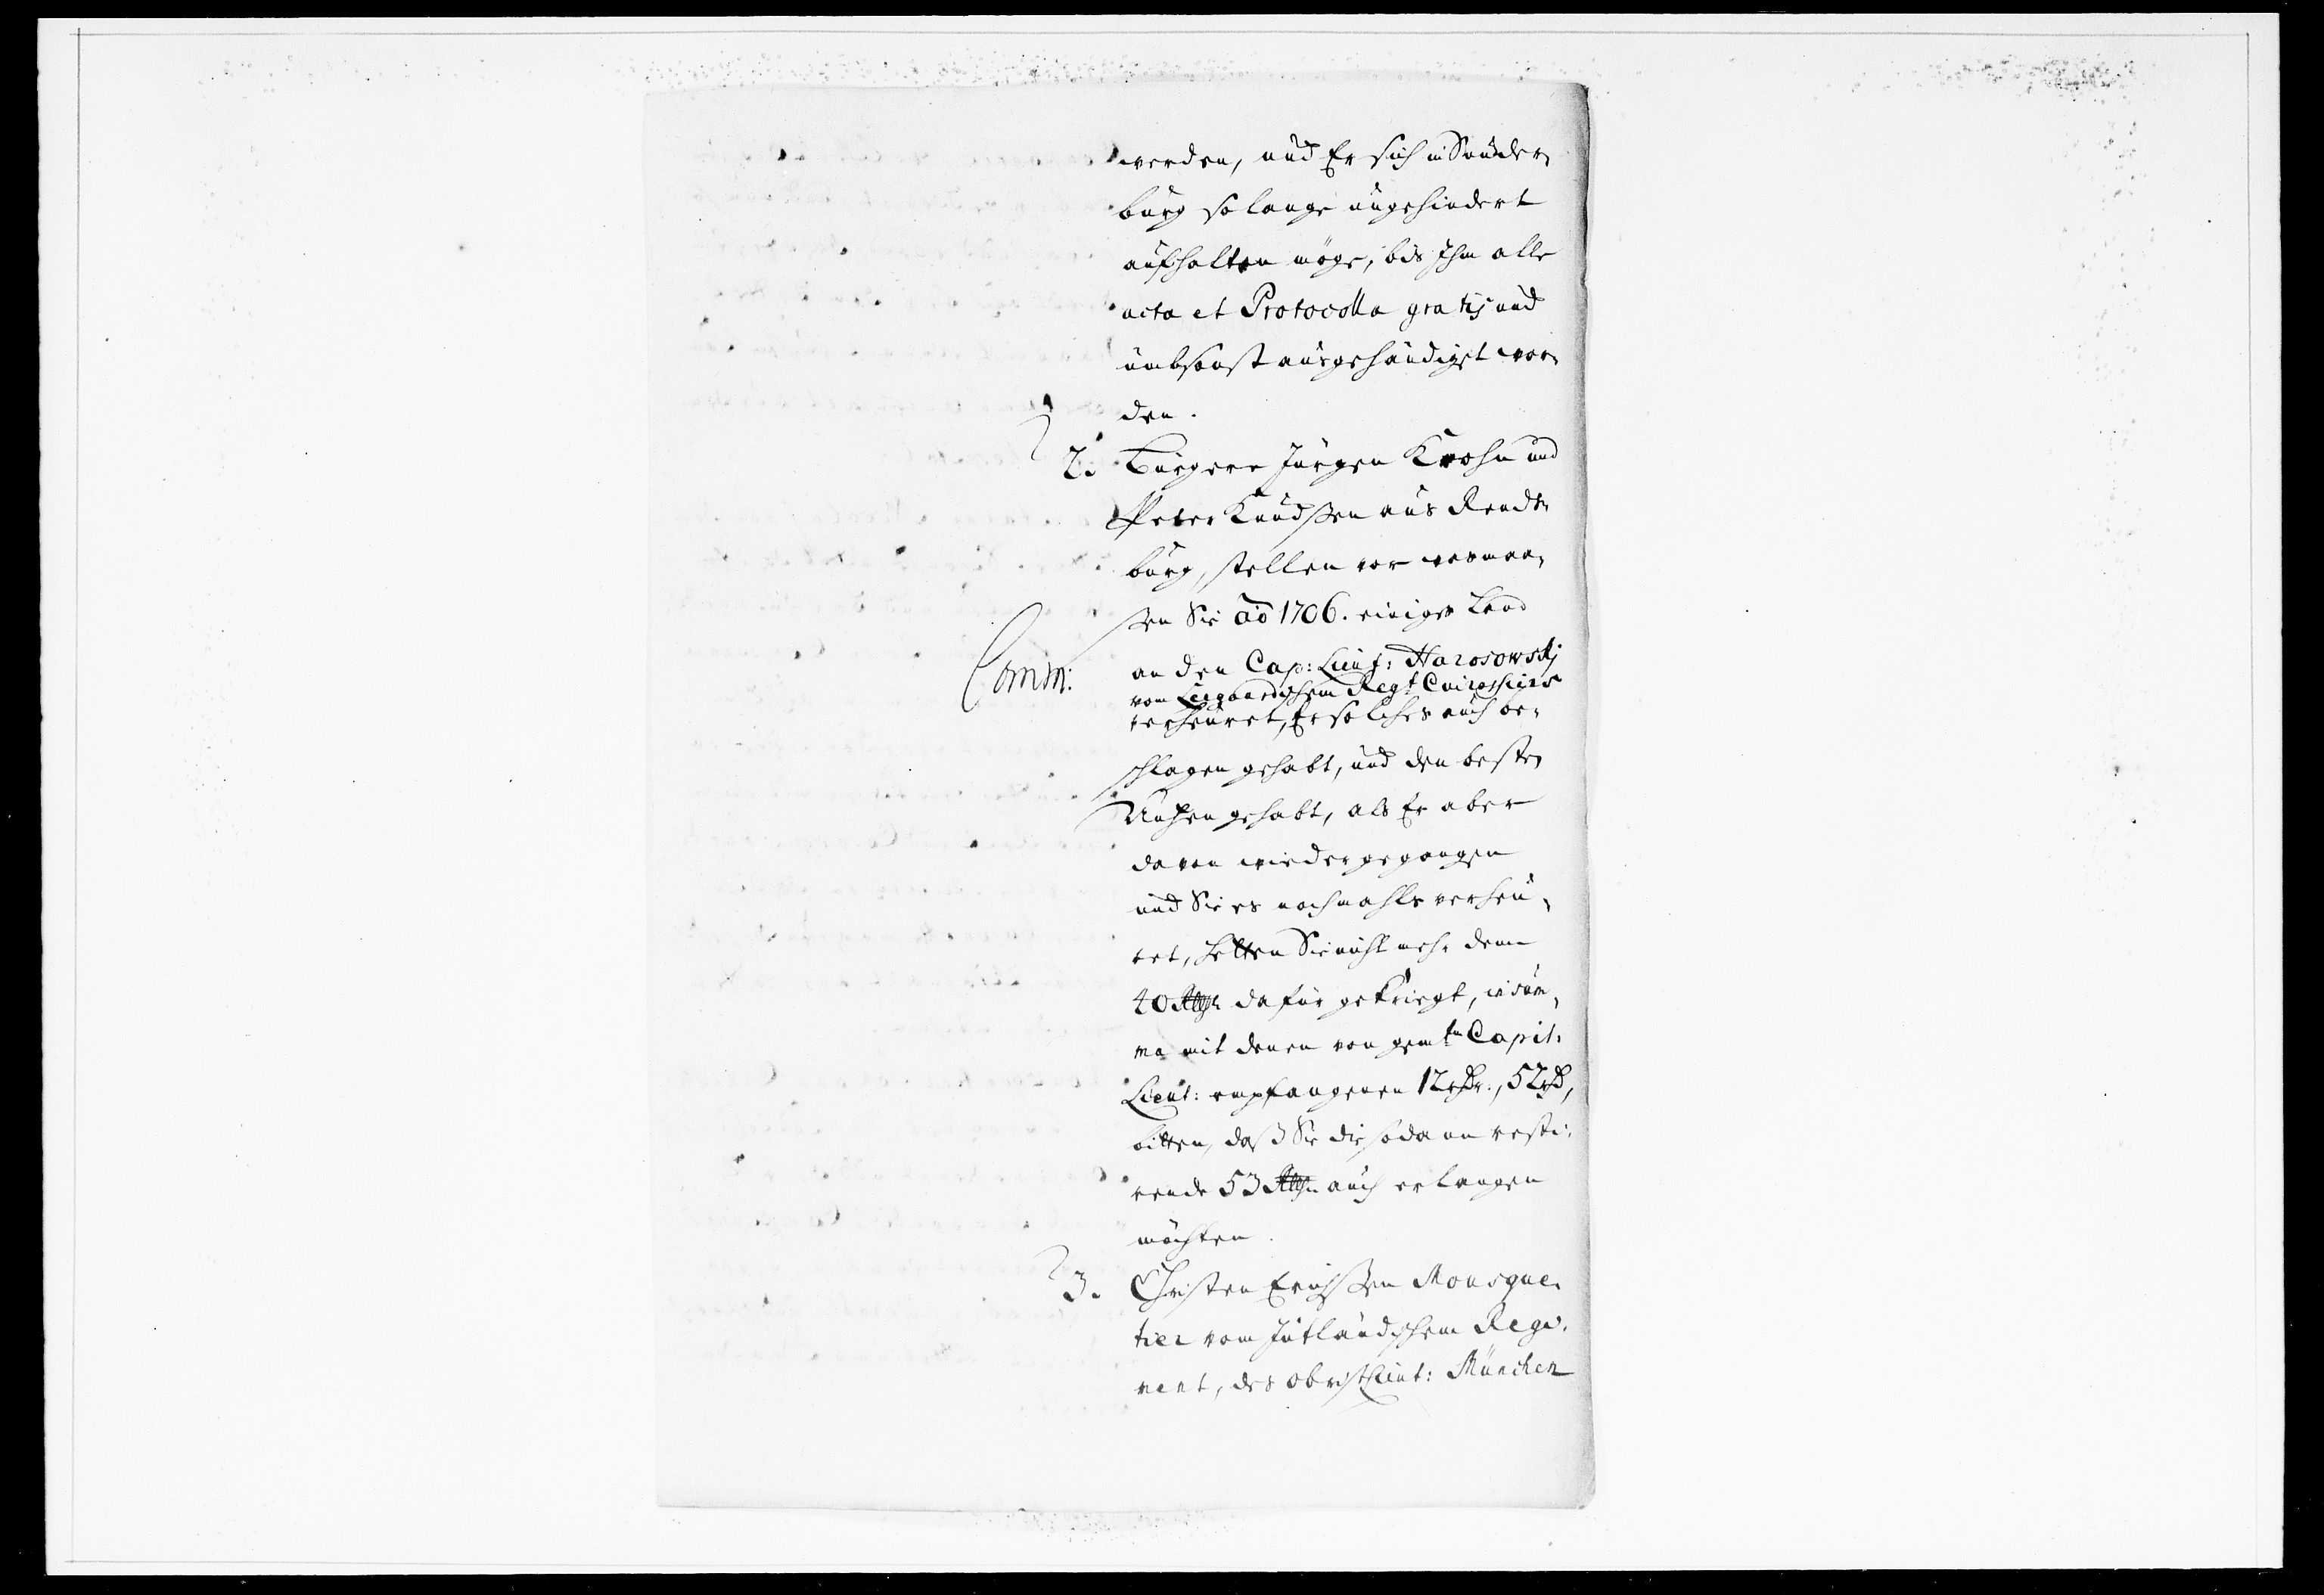 werden, und Er sich in Sonder,
burg so lange ungehindert
aufhalten möge, bis Ihm alle
acta et Protocolla gratis und
umbsonst ausgehändiget wor,
den.
2. Bürgere Jürgen Krohn und
Peter Knudsen aus Rends,
burg, stellen vor wasmaa,
ßen Sie ao 1706. einiges Land
Comm:
an den Cap: Lieut: Harosowskj
vom Regt Cuirassiers
verheuret, Er solches auch be,
schlagen gehabt, und den besten
Nutzen gehabt, als Er aber
davon wieder gegangen
und Sie es nochmahls verheu,
ret, hetten Sie nicht mehr denn
40 Rthlr dafür gekriegt, in sum,
ma mit denen von gemtn Capit:
Lieut: empfangenen 12 rthlr., 52 rthlr,
bitten, daß Sie die sodann resti,
rende 53 Rthlr auch erlangen
möchten.
3. Christen Erichßen Mousque,
tier vom Jütländischem Regi,
ment, des Obristlieut: München